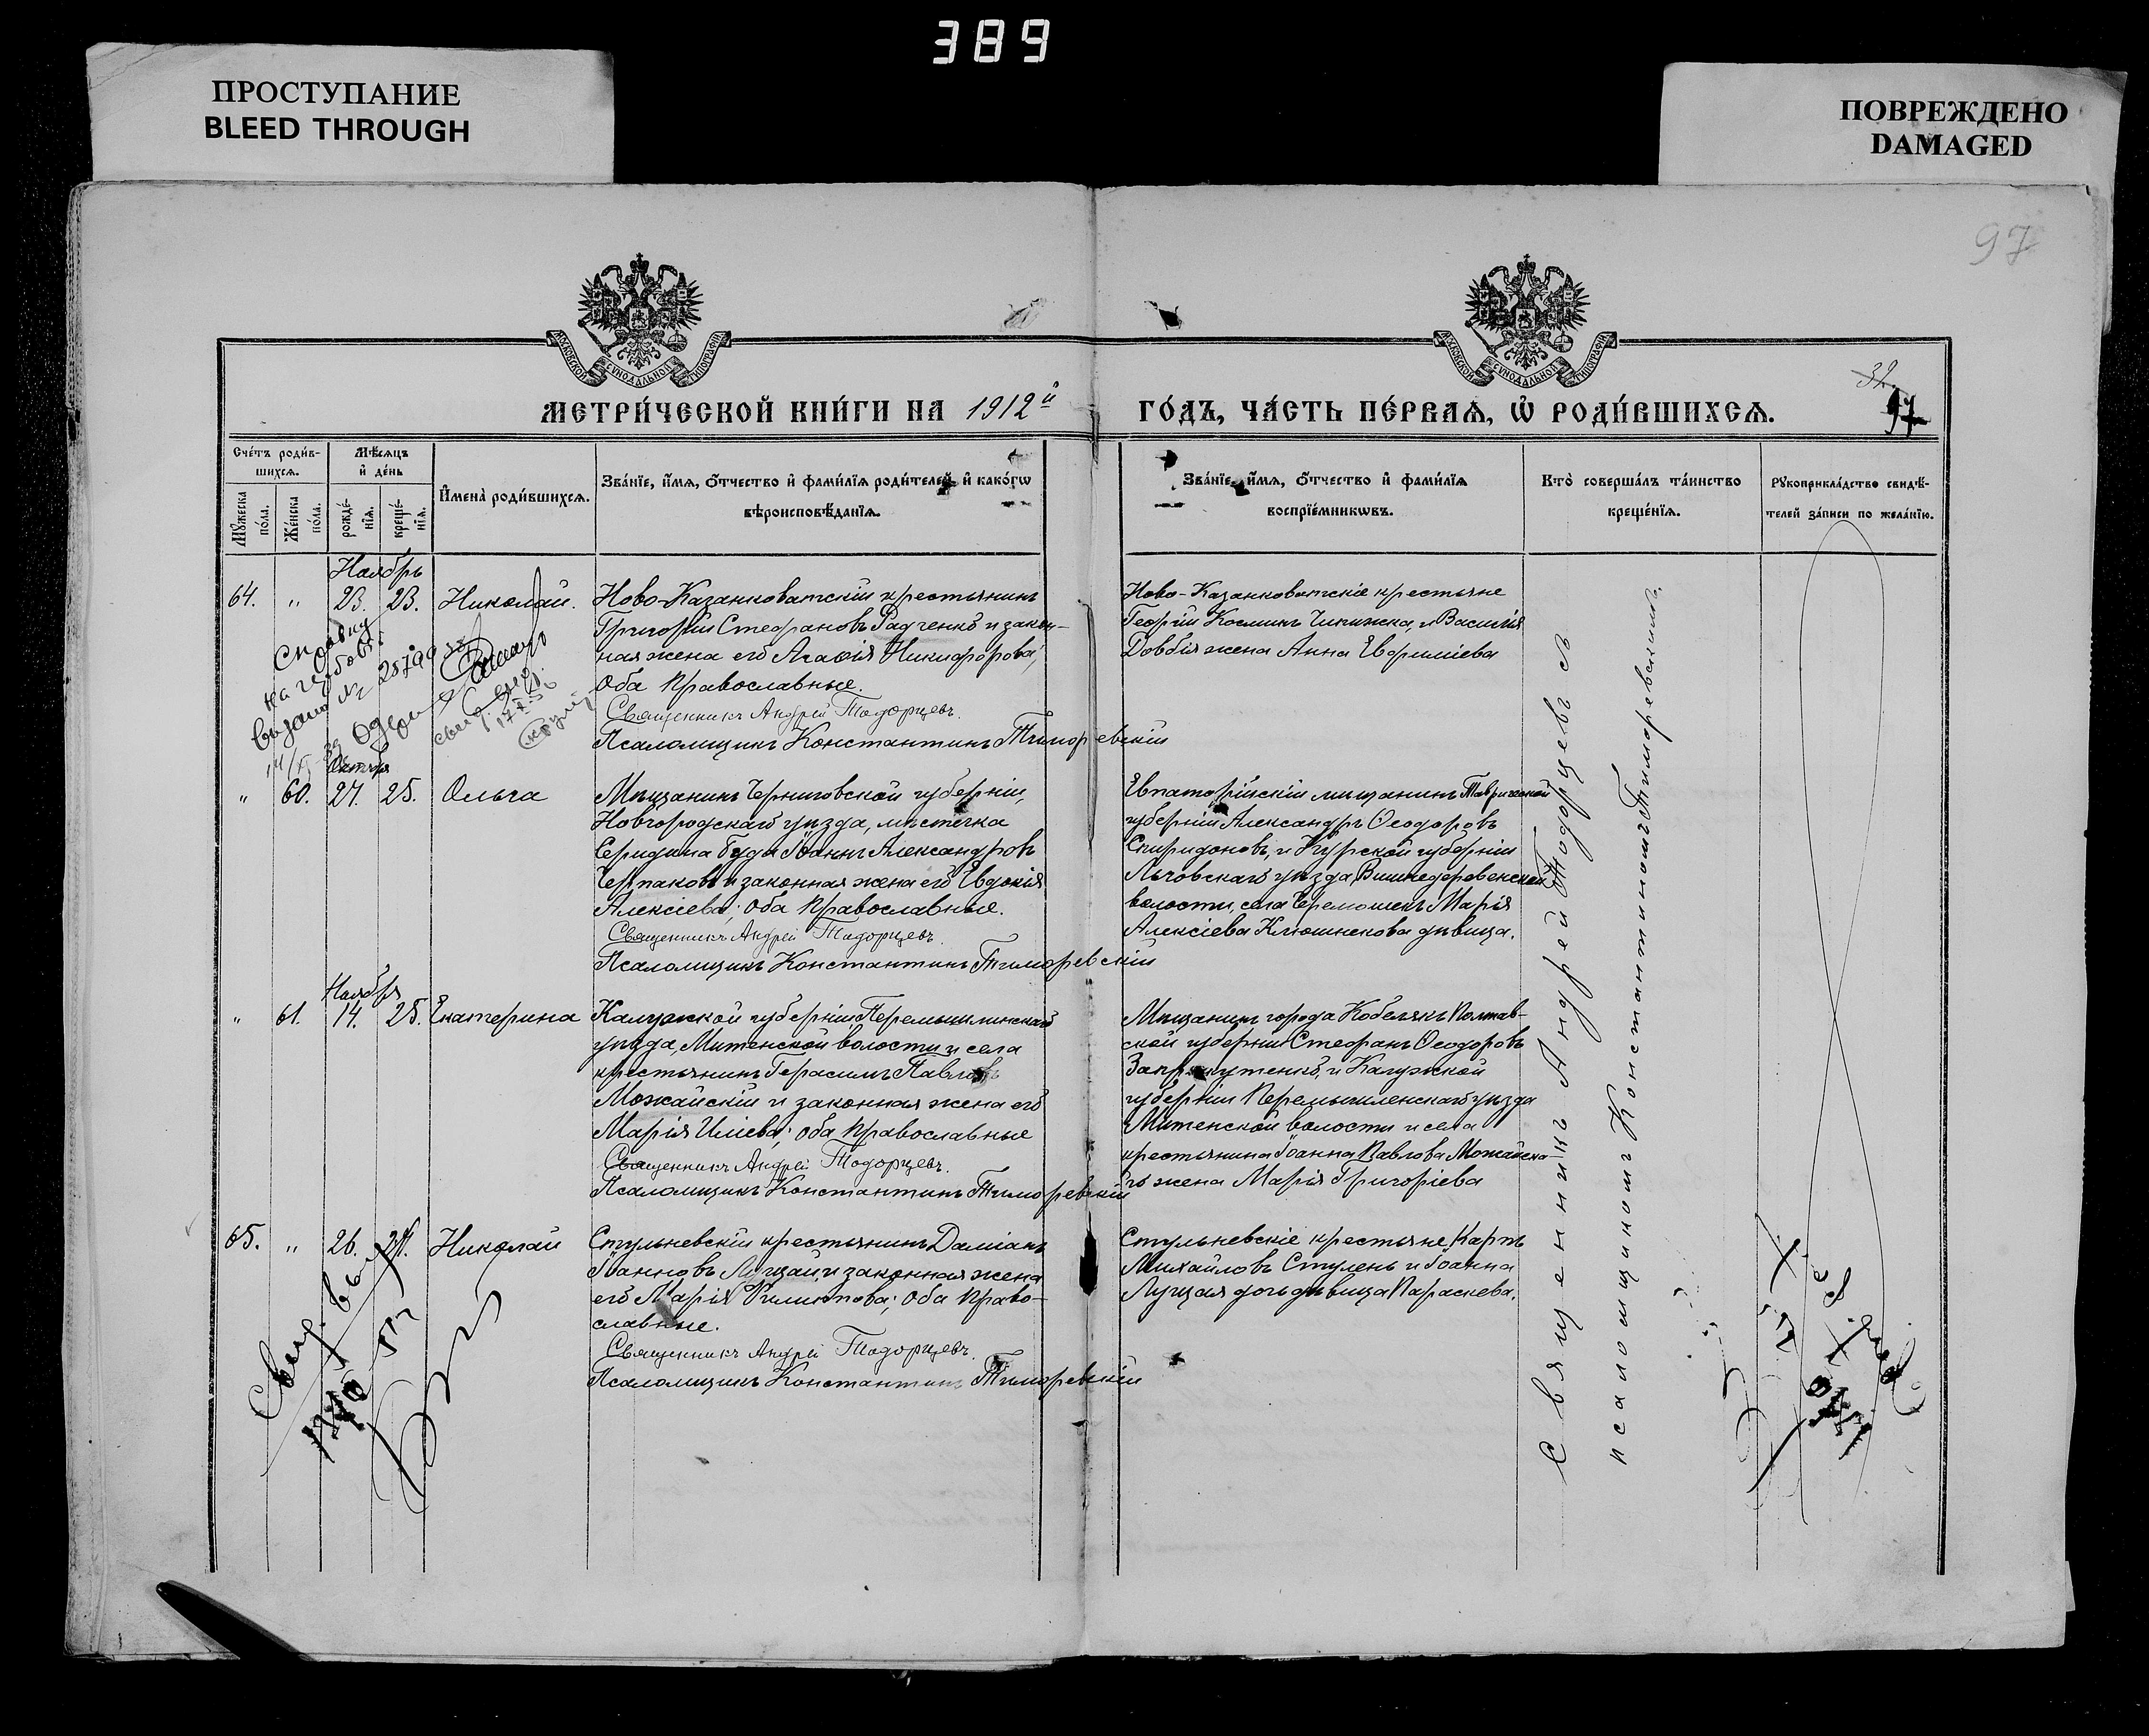 389
ПРОСТУПАНИЕ
BLEED THROUGH
ПОВРЕЖДЕНО
DAMAGED
97
МОСКОВСКОЙ СѴНОДАЛЬНОЙ ТИПОГРАФІИ
МОСКОВСКОЙ СѴНОДАЛЬНОЙ ТИПОГРАФІИ
МЕТРИ́ЧЕСКОЙ КНИ́ГИ НА 1912й
ГО́ДЪ, ЧА́СТЬ ПЕ́РВАѦ, Ѡ҆ РОДИ́ВШИХСѦ.
32.
97
Сче́тъ роди́в-
шихсѧ.
Мꙋ́жеска по́ла.
Же́нска по́ла.
Мѣ́сѧцъ
и҆ де́нь
рожде́-
нїѧ.
креще́-
нїѧ.
И҆мена̀ роди́вшихсѧ.
Зва́нїе, и҆́мѧ, ѻ҆́тчество и҆ фами́лїѧ роди́телей, и҆ како́гѡ
вѣроисповѣ́данїѧ.
Зва́нїе, и҆́мѧ, ѻ҆́тчество и҆ фами́лїѧ
воспрїе́мникѡвъ.
Кто̀ соверша́лъ та́инство
креще́нїѧ.
Рꙋкоприкла́дство свидѣ́-
телей за́писи по жела́нїю.
Ноябрь
64. " 23. 23. Николай.
Ново-Казанковатскій крестьянинъ
Григорій Стефановъ Радченко и закон-
ная жена его Агаѳія Никифорова,
Оба православные.
Священникъ Андрей Тодорцевъ.
Псаломщикъ Константинъ Тиморевскій
Ново-Казанковатскіе крестьяне
Георгій Косминъ Чипижка, и Василія
Довбія жена Анна Евфиміева
Справку
Октябр
" 60. 27. 25. Ольга
Мѣщанинъ Черниговской губерніи,
Новгородскаго уѣзда, мѣстечка
Середина Буда Іоаннъ Александровъ
Черпаковъ и законная жена его Евдокія
Алексіева; Оба Православные.
Священникъ Андрей Тодорцевъ.
Псаломщикъ Константинъ Тиморевскій
Евпаторійскій мѣщанинъ Таврической
губерніи Александръ Ѳеодоровъ
Спиридоновъ, и Курской губерніи
Льговскаго уѣзда, Вышнедеревенской
волости, села Черемошекъ Марія
Алексіева Клюшнекова дѣвица.
Ноября
" 61. 14. 25. Екатерина
Калужской губерніи, Перемышлинскаго
уѣзда, Митенской волости и села
крестьянинъ Герасимъ Павловъ
Можайскій и законная жена его
Марія Иліева; Оба Православные
Священникъ Андрей Тодорцевъ.
Псаломщикъ Константинъ Тиморевскій
Мѣщанинъ города Кобелякъ Полтав-
ской губерніи Стефанъ Ѳеодоровъ
и Калужской
губерніи Перемышленскаго уѣзда
Митенской волости и села
крестьянина Іоанна Павлова Можайска-
го жена Марія Григоріева
65. " 26. Николай
Стульневскій крестьянинъ Даміанъ
Іоанновъ Луцай, и законная жена
его Марія Филиппова; Оба Право-
славные.
Священникъ Андрей Тодорцевъ.
Псаломщикъ Константинъ Тиморевскій
Стульневскіе крестьяне, Карпъ
Михайловъ Ступень и Іоанна
Луцая дочь дѣвица Параскева.
Священникъ Андрей Тодорцевъ съ
псаломщикомъ Константиномъ Тиморевскимъ.